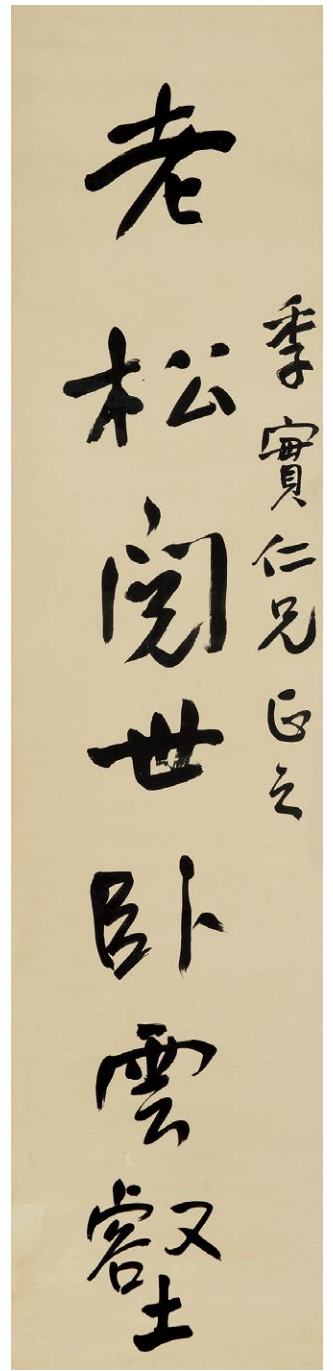 季實仁兄正之
老松閱世卧雲壑